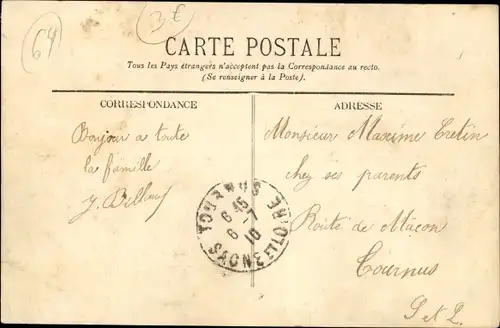 64
3€
CARTE POSTALE
Tous les Pays étrangers n'acceptent pas la Correspondance au recto.
(Se renseigner à la Poste).
CORRESPONDANCE
ADRESSE
Bonjour a toute
la famille
J.
Monsieur Maxime Cretin
chez ses parents
Route de Macon
Tournus
S et L.
TOURNUS
6 45
6 - 7
10
SAONE ET LOIRE